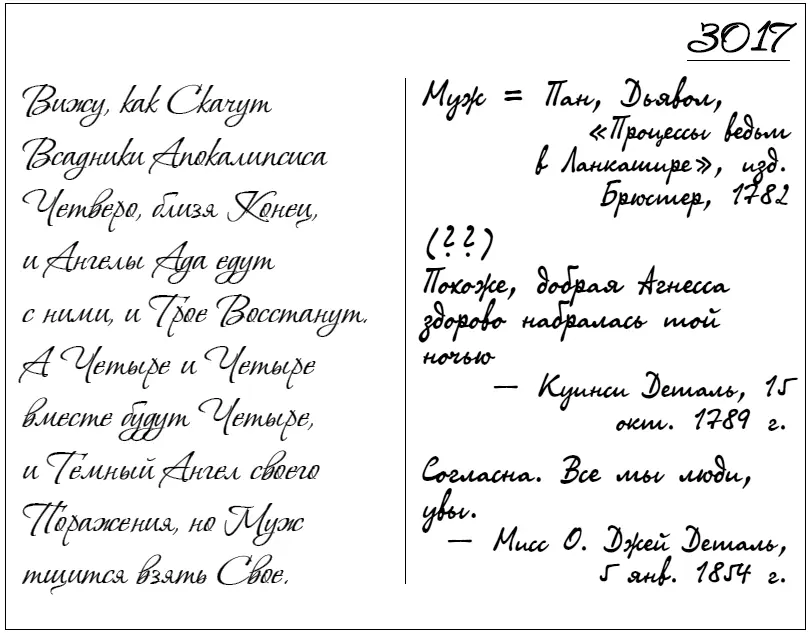 3017
Вижу, как Скачут
Всадники Апокалипсиса
Четверо, близя Конец,
и Ангелы Ада едут
с ними, и Трое Восстанут.
А Четыре и Четыре
вместе будут Четыре,
и Тёмный Ангел своего
Поражения, но Муж
тщится взять Свое.
Муж = Пан, Дьявол,
«Процессы ведьм
в Ланкашире», изд.
Брюстер, 1782
(??)
Похоже, добрая Агнесса
здорово набралась той
ночью
— Куинси Деталь, 15
окт. 1789 г.
Согласна. Все мы люди,
увы.
— Мисс О. Джей Деталь,
5 янв. 1854 г.